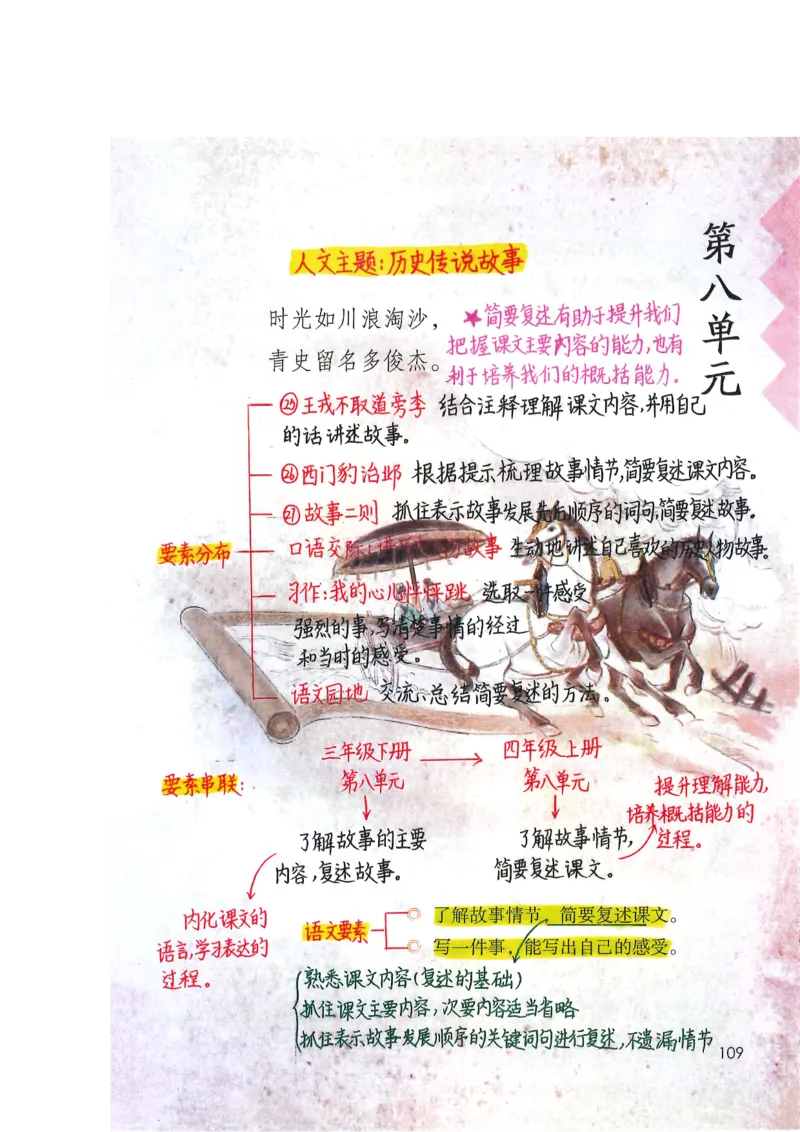 第八单元
人文主题:历史传说故事
时光如川浪淘沙，
青史留名多俊杰。
★简要复述有助于提升我们
把握课文主要内容的能力,也有
利于培养我们的概括能力.
要素分布
㉕王戎不取道旁李 结合注释理解课文内容,并用自己
的话讲述故事。
㉖西门豹治邺 根据提示梳理故事情节,简要复述课文内容。
㉗故事二则 抓住表示故事发展先后顺序的词句,简要复述故事。
口语交际:讲历史人物故事 生动地讲述自己喜欢的历史人物故事。
习作:我的心儿怦怦跳 选取一件感受
强烈的事,写清楚事情的经过
和当时的感受。
语文园地 交流、总结简要复述的方法。
要素串联:
三年级下册 → 四年级上册
第八单元 第八单元
了解故事的主要
内容,复述故事。
了解故事情节,
简要复述课文。
提升理解能力,
培养概括能力的
过程。
内化课文的
语言,学习表达的
过程。
语文要素
◎ 了解故事情节，简要复述课文。
◎ 写一件事，能写出自己的感受。
熟悉课文内容(复述的基础)
抓住课文主要内容,次要内容适当省略
抓住表示故事发展顺序的关键词句进行复述,不遗漏情节
109